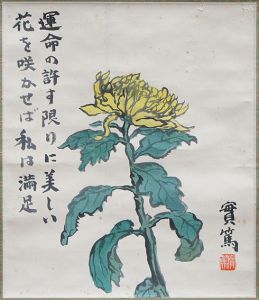 運命の許す限りに美しい
花を咲かせば私は満足
實篤